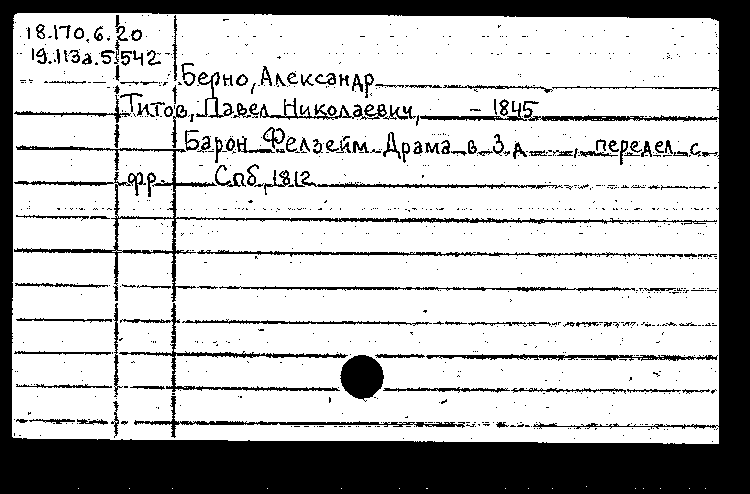 18.170.6.20
19.113а.5.542
Берно, Александр
Титов, Павел Николаевич, - 1845
Барон Фелзейм. Драма в 3 д , передел с
фр. Спб, 1812